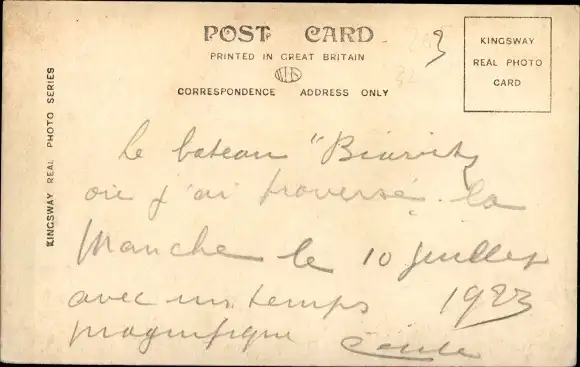 POST CARD
PRINTED IN GREAT BRITAIN
CORRESPONDENCE ADDRESS ONLY
KINGSWAY
REAL PHOTO
CARD
KINGSWAY REAL PHOTO SERIES
3
32
Le bateau "Biarritz
où j'ai traversé la
Manche le 10 juillet
avec un temps 1923
magnifique